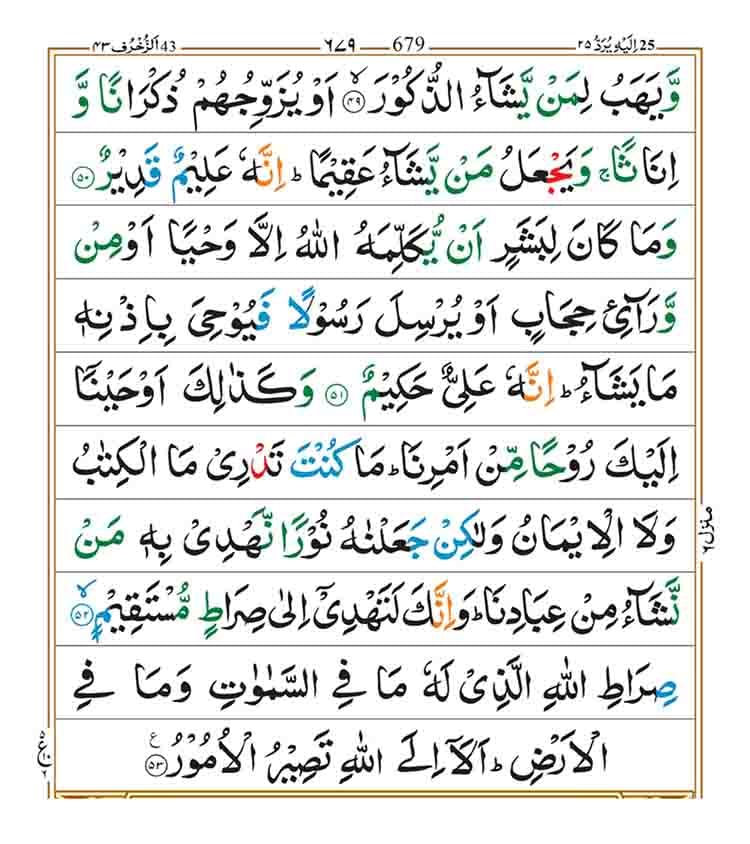 ٤٣ اَلزُّخْرُف 43 ٦٧٩ 679 ٢٥ اِلَيْهِ يُرَدُّ 25
وَّيَهَبُ لِمَنْ يَّشَآءُ الذُّكُوْرَ ۙ﴿۴۹﴾ اَوْ يُزَوِّجُهُمْ ذُكْرَانًا وَّ
اِنَاثًا ۚ وَيَجْعَلُ مَنْ يَّشَآءُ عَقِيْمًا ؕ اِنَّهٗ عَلِيْمٌ قَدِيْرٌ ﴿۵۰﴾
وَمَا كَانَ لِبَشَرٍ اَنْ يُّكَلِّمَهُ اللّٰهُ اِلَّا وَحْيًا اَوْ مِنْ
وَّرَآئِ حِجَابٍ اَوْ يُرْسِلَ رَسُوْلًا فَيُوْحِيَ بِاِذْنِهٖ
مَا يَشَآءُ ؕ اِنَّهٗ عَلِيٌّ حَكِيْمٌ ﴿۵۱﴾ وَكَذٰلِكَ اَوْحَيْنَاۤ
اِلَيْكَ رُوْحًا مِّنْ اَمْرِنَا ؕ مَا كُنْتَ تَدْرِيْ مَا الْكِتٰبُ
وَلَا الْاِيْمَانُ وَلٰكِنْ جَعَلْنٰهُ نُوْرًا نَّهْدِيْ بِهٖ مَنْ
نَّشَآءُ مِنْ عِبَادِنَا ؕ وَاِنَّكَ لَتَهْدِيْۤ اِلٰى صِرَاطٍ مُّسْتَقِيْمٍ ۙ﴿۵۲﴾
صِرَاطِ اللّٰهِ الَّذِيْ لَهٗ مَا فِي السَّمٰوٰتِ وَمَا فِي
الْاَرْضِ ؕ اَلَاۤ اِلَى اللّٰهِ تَصِيْرُ الْاُمُوْرُ ﴿۵۳﴾ ع
منزل ٦